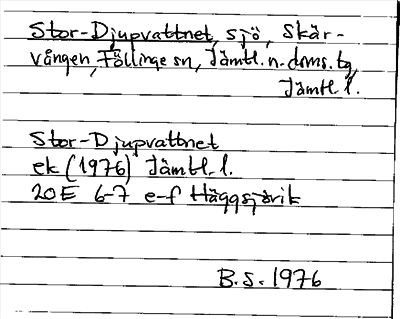 Stor-Djupvattnet, sjö, Skär-
vången, Föllinge sn, Jämtl. n. doms. tg,
Jämtl. l.
Stor-Djupvattnet
ek (1976) Jämtl. l.
20E 6-7 e-f Häggsjövik
B.S. 1976